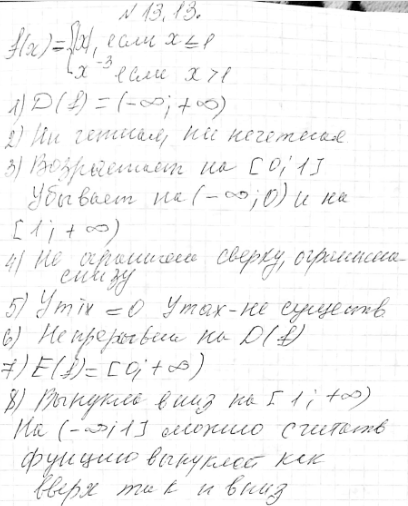 № 13.13.
f(x)={|x|, если x ≤ 1
x⁻³ если x > 1
1) D(f) = (-∞; +∞)
2) Ни четная, ни нечетная
3) Возрастает на [0; 1]
Убывает на (-∞; 0) и на
[1; +∞)
4) Не ограничена сверху, ограничена
снизу
5) Ymin = 0 Ymax - не существ
6) Непрерывна на D(f)
7) E(f) = [0; +∞)
8) Выпукла вниз на [1; +∞)
На (-∞; 1] можно считать
функцию выпуклой как
вверх так и вниз